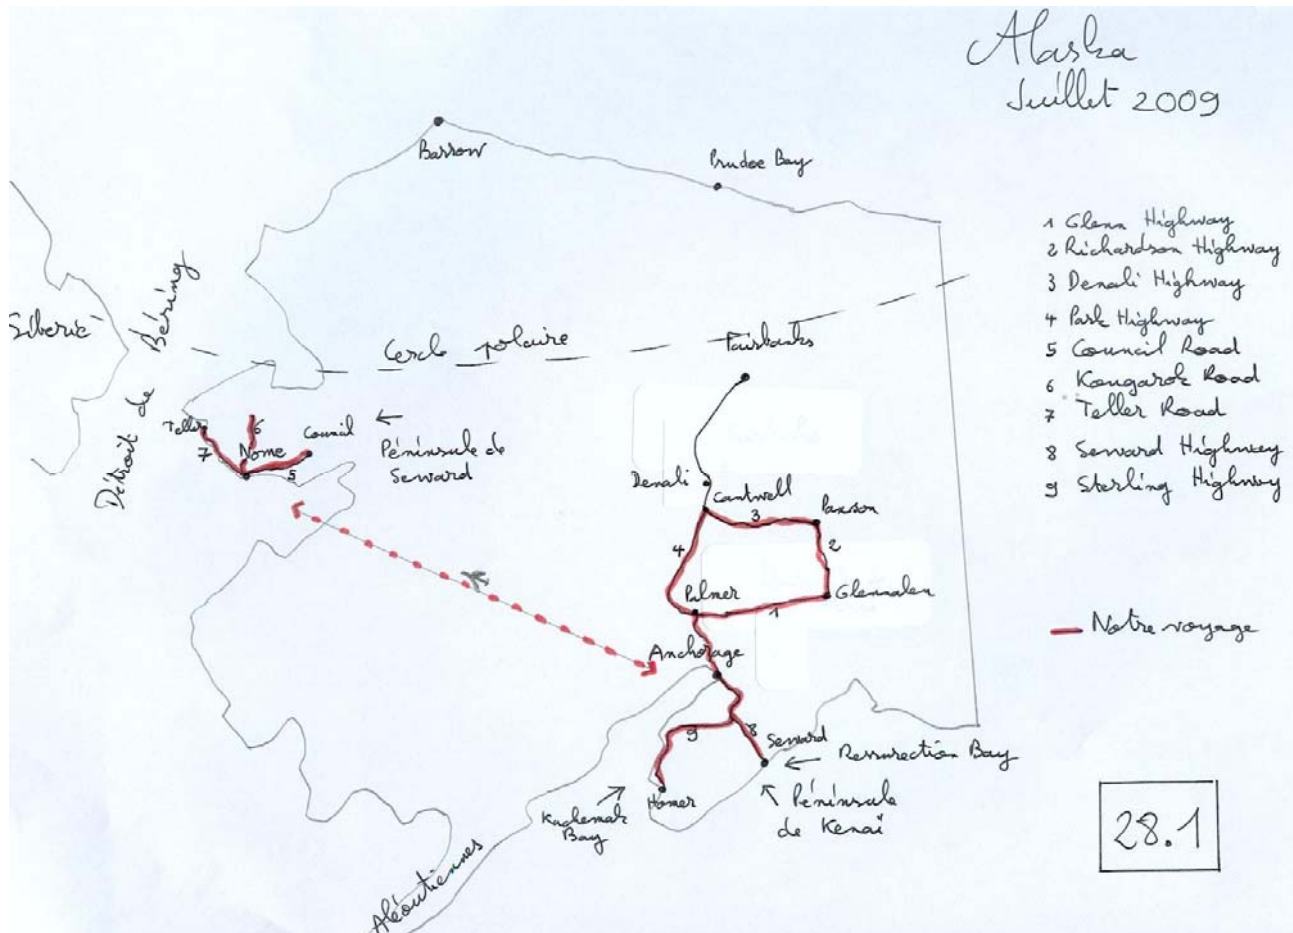 Alaska
Juillet 2009
Barrow
Prudoe Bay
1 Glenn Highway
2 Richardson Highway
3 Denali Highway
4 Park Highway
5 Council Road
6 Kougarok Road
7 Teller Road
8 Seward Highway
9 Sterling Highway
Sibérie
Détroit de Béring
Cercle polaire
Fairbanks
Teller
6
Council
7
Nome
5
Péninsule de
Seward
Denali
Cantwell
3
Paxson
4
2
Palmer
Glennalen
1
Notre voyage
Anchorage
9
8
Seward
Ressurection Bay
Homer
Kachemak
Bay
Péninsule
de Kenaï
Aléoutiennes
28.1